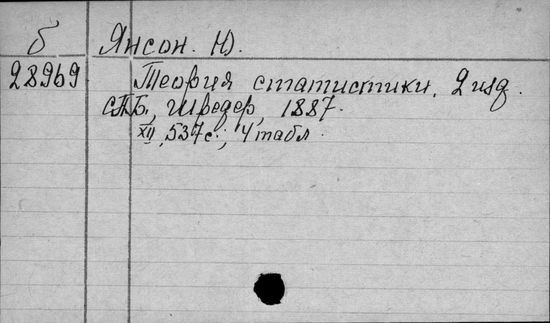 б Янсон. Ю.
28969 Теория статистики. 2 изд.
СПБ., Шредер, 1887.
XII, 537 с.; 4 табл.